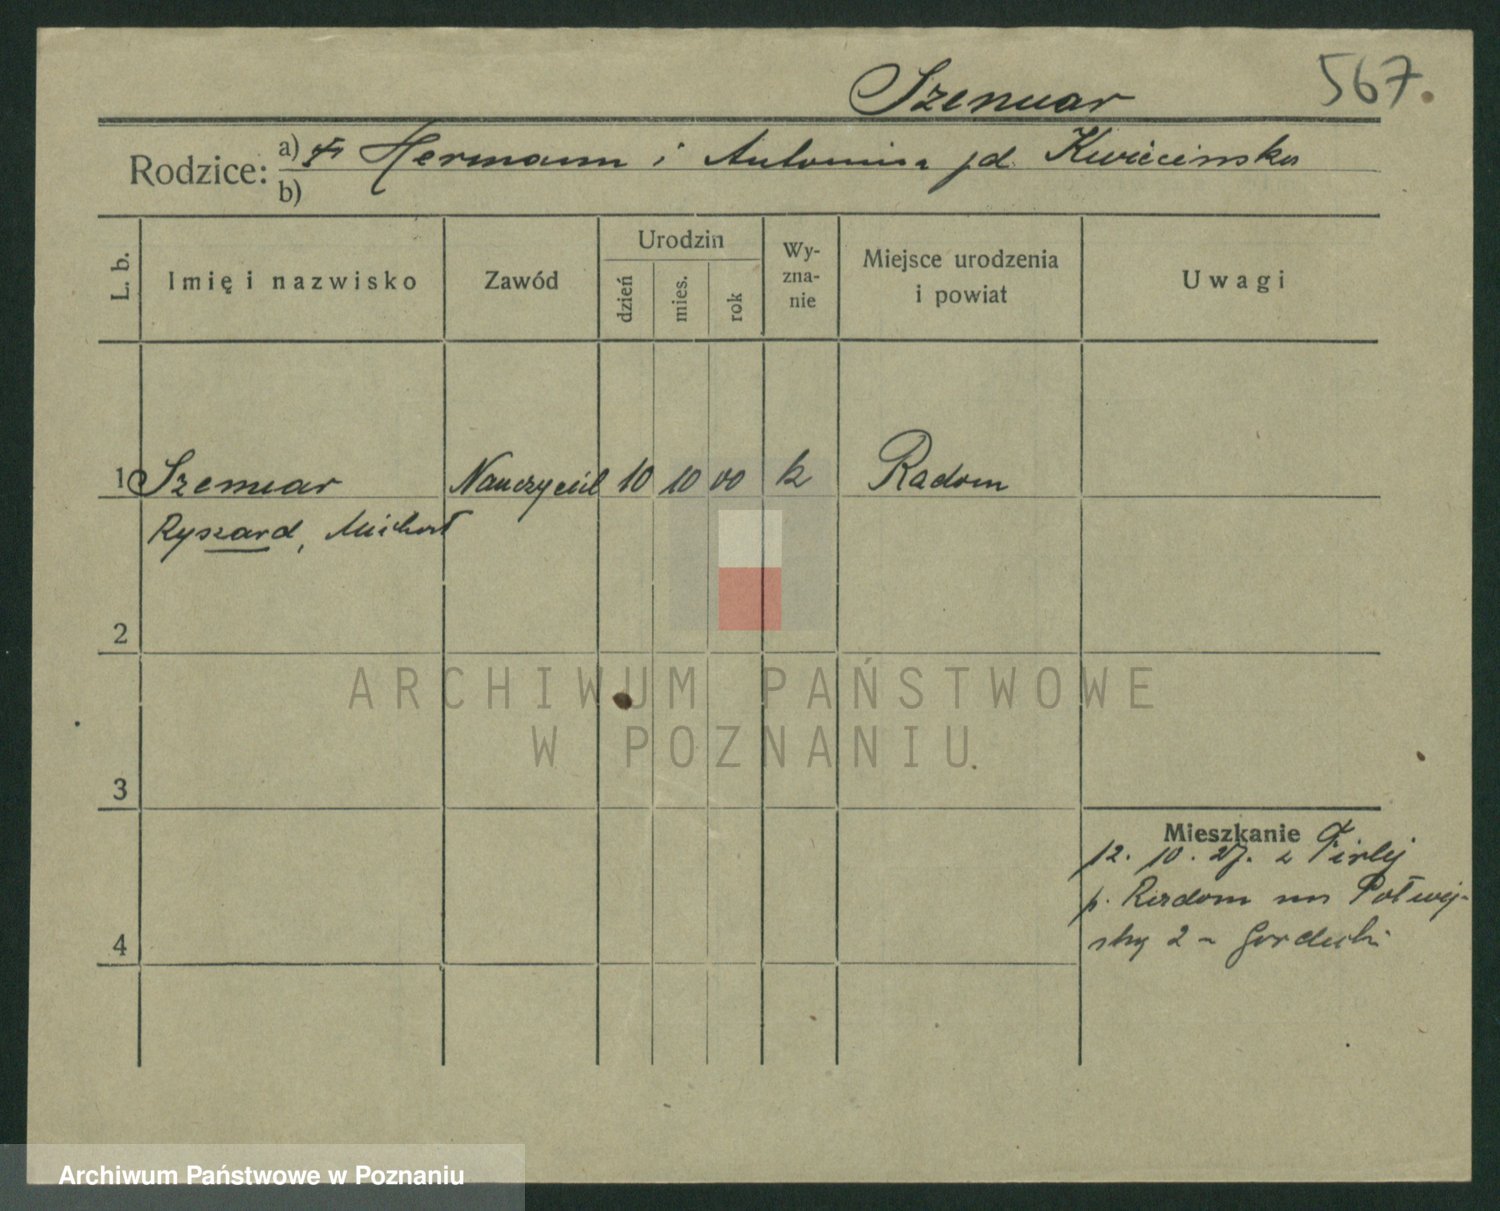 Szenuar 567.
Rodzice: a) † Hermann i Antonina jd. Kwiecinska
b)
L. b.
Imię i nazwisko
Zawód
Urodzin
dzień
mies.
rok
Wy-
zna-
nie
Miejsce urodzenia
i powiat
Uwagi
1 Szenuar Nauczyciel 10 10 00 k Radom
Ryszard, Michał
2
ARCHIWUM PAŃSTWOWE
W POZNANIU
3
Mieszkanie
12. 10. 27. z Firlej
p. Radom na Połwiej-
ską 2 -
4
Archiwum Państwowe w Poznaniu